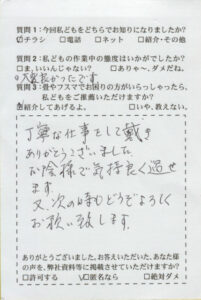 質問1:今回私どもをどちらでお知りになりましたか?
☑チラシ □電話 □ネット □紹介・その他
質問2:私どもの作業中の態度はいかがでしたか?
□ま、いいんじゃない? □ありゃ~、ダメだね。
大変良かったです。
質問3:畳やフスマでお困りの方がいらっしゃったら、
私どもをご推薦いただけますか?
☑紹介してあげるよ。 □いや、教えない。
丁寧な仕事をして戴き
ありがとうございました
お陰様で気持良く過せ
ます。
又、次の時もどうぞよろしく
お願い致します。
ありがとうございました。お答えいただいた、あなた様
の声を、弊社資料等に掲載させていただけますか?
□許可する ☑匿名なら □絶対ダメ